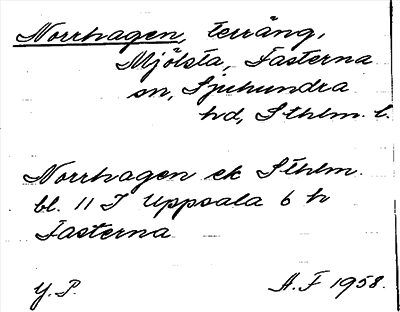 Norrhagen, terräng,
Mjölsta, Fasterna
sn, Sjuhundra
hd, Sthlm. l.
Norrhagen ek Sthlm.
bl. 11 I Uppsala 6 h
Fasterna
Y. P. A. F 1958.